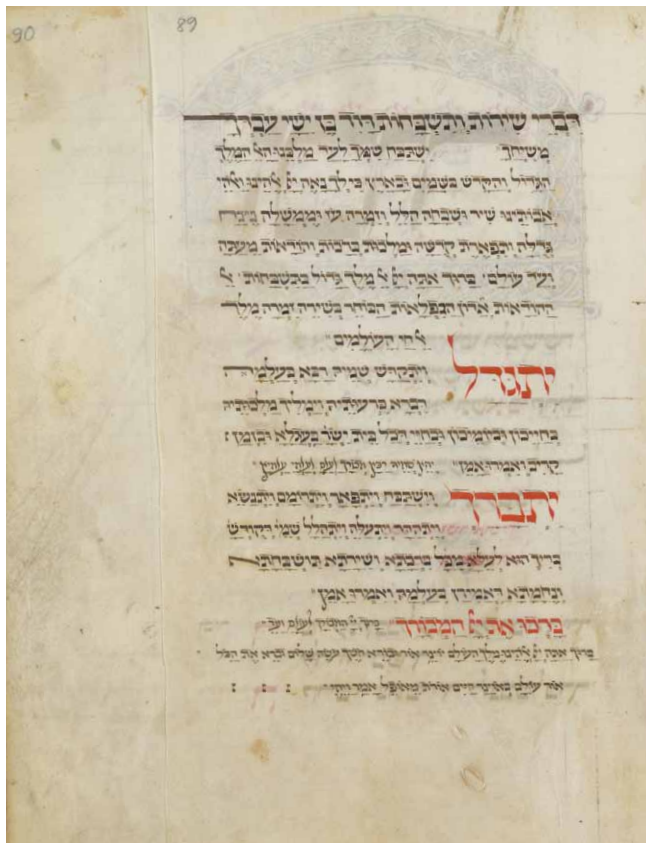 90
89
דברי שירות ותשבחות דויד בן ישי עבדך
משיחך ישתבח שמך לעד מלכנו הא המלך
הגדול והקדש בשמים ובארץ כי לך נאה יי אלהינו ואלהי
אבותינו שיר ושבחה הלל וזמרה עז וממשלה נצח
גדלה ותפארת קדשה ומלכות ברכות והודאות מעתה
ועד עולם ברוך אתה יי אל מלך גדול בתשבחות אל
ההודאות אדון הנפלאות הבוחר בשירה זמרה מלך
אל חי העולמים
יתגדל ויתקדש שמיה רבא בעלמא
דברא כרעותיה וימליך מלכותיה
בחייכון וביומיכון ובחיי דכל בית ישר בעגלא ובזמן
קריב ואמרו אמן
יתברך וישתבח ויתפאר ויתרומם ויתנשא
ויתהדר ויתעלה ויתהלל שמו דקודש
בריך הוא לעלא מכל ברכתא ושירתא תושבחתא
ונחמתא דאמירן בעלמה ואמרו אמן
ברכו את יי המבורך ברוך יי המבורך לעולם ועד
ברוך אתה יי אלהינו מלך העולם יוצר אור ובורא חשך עשה שלום ובורא את הכל
אור עולם באוצר חיים אורות מאופל אמר ויהי